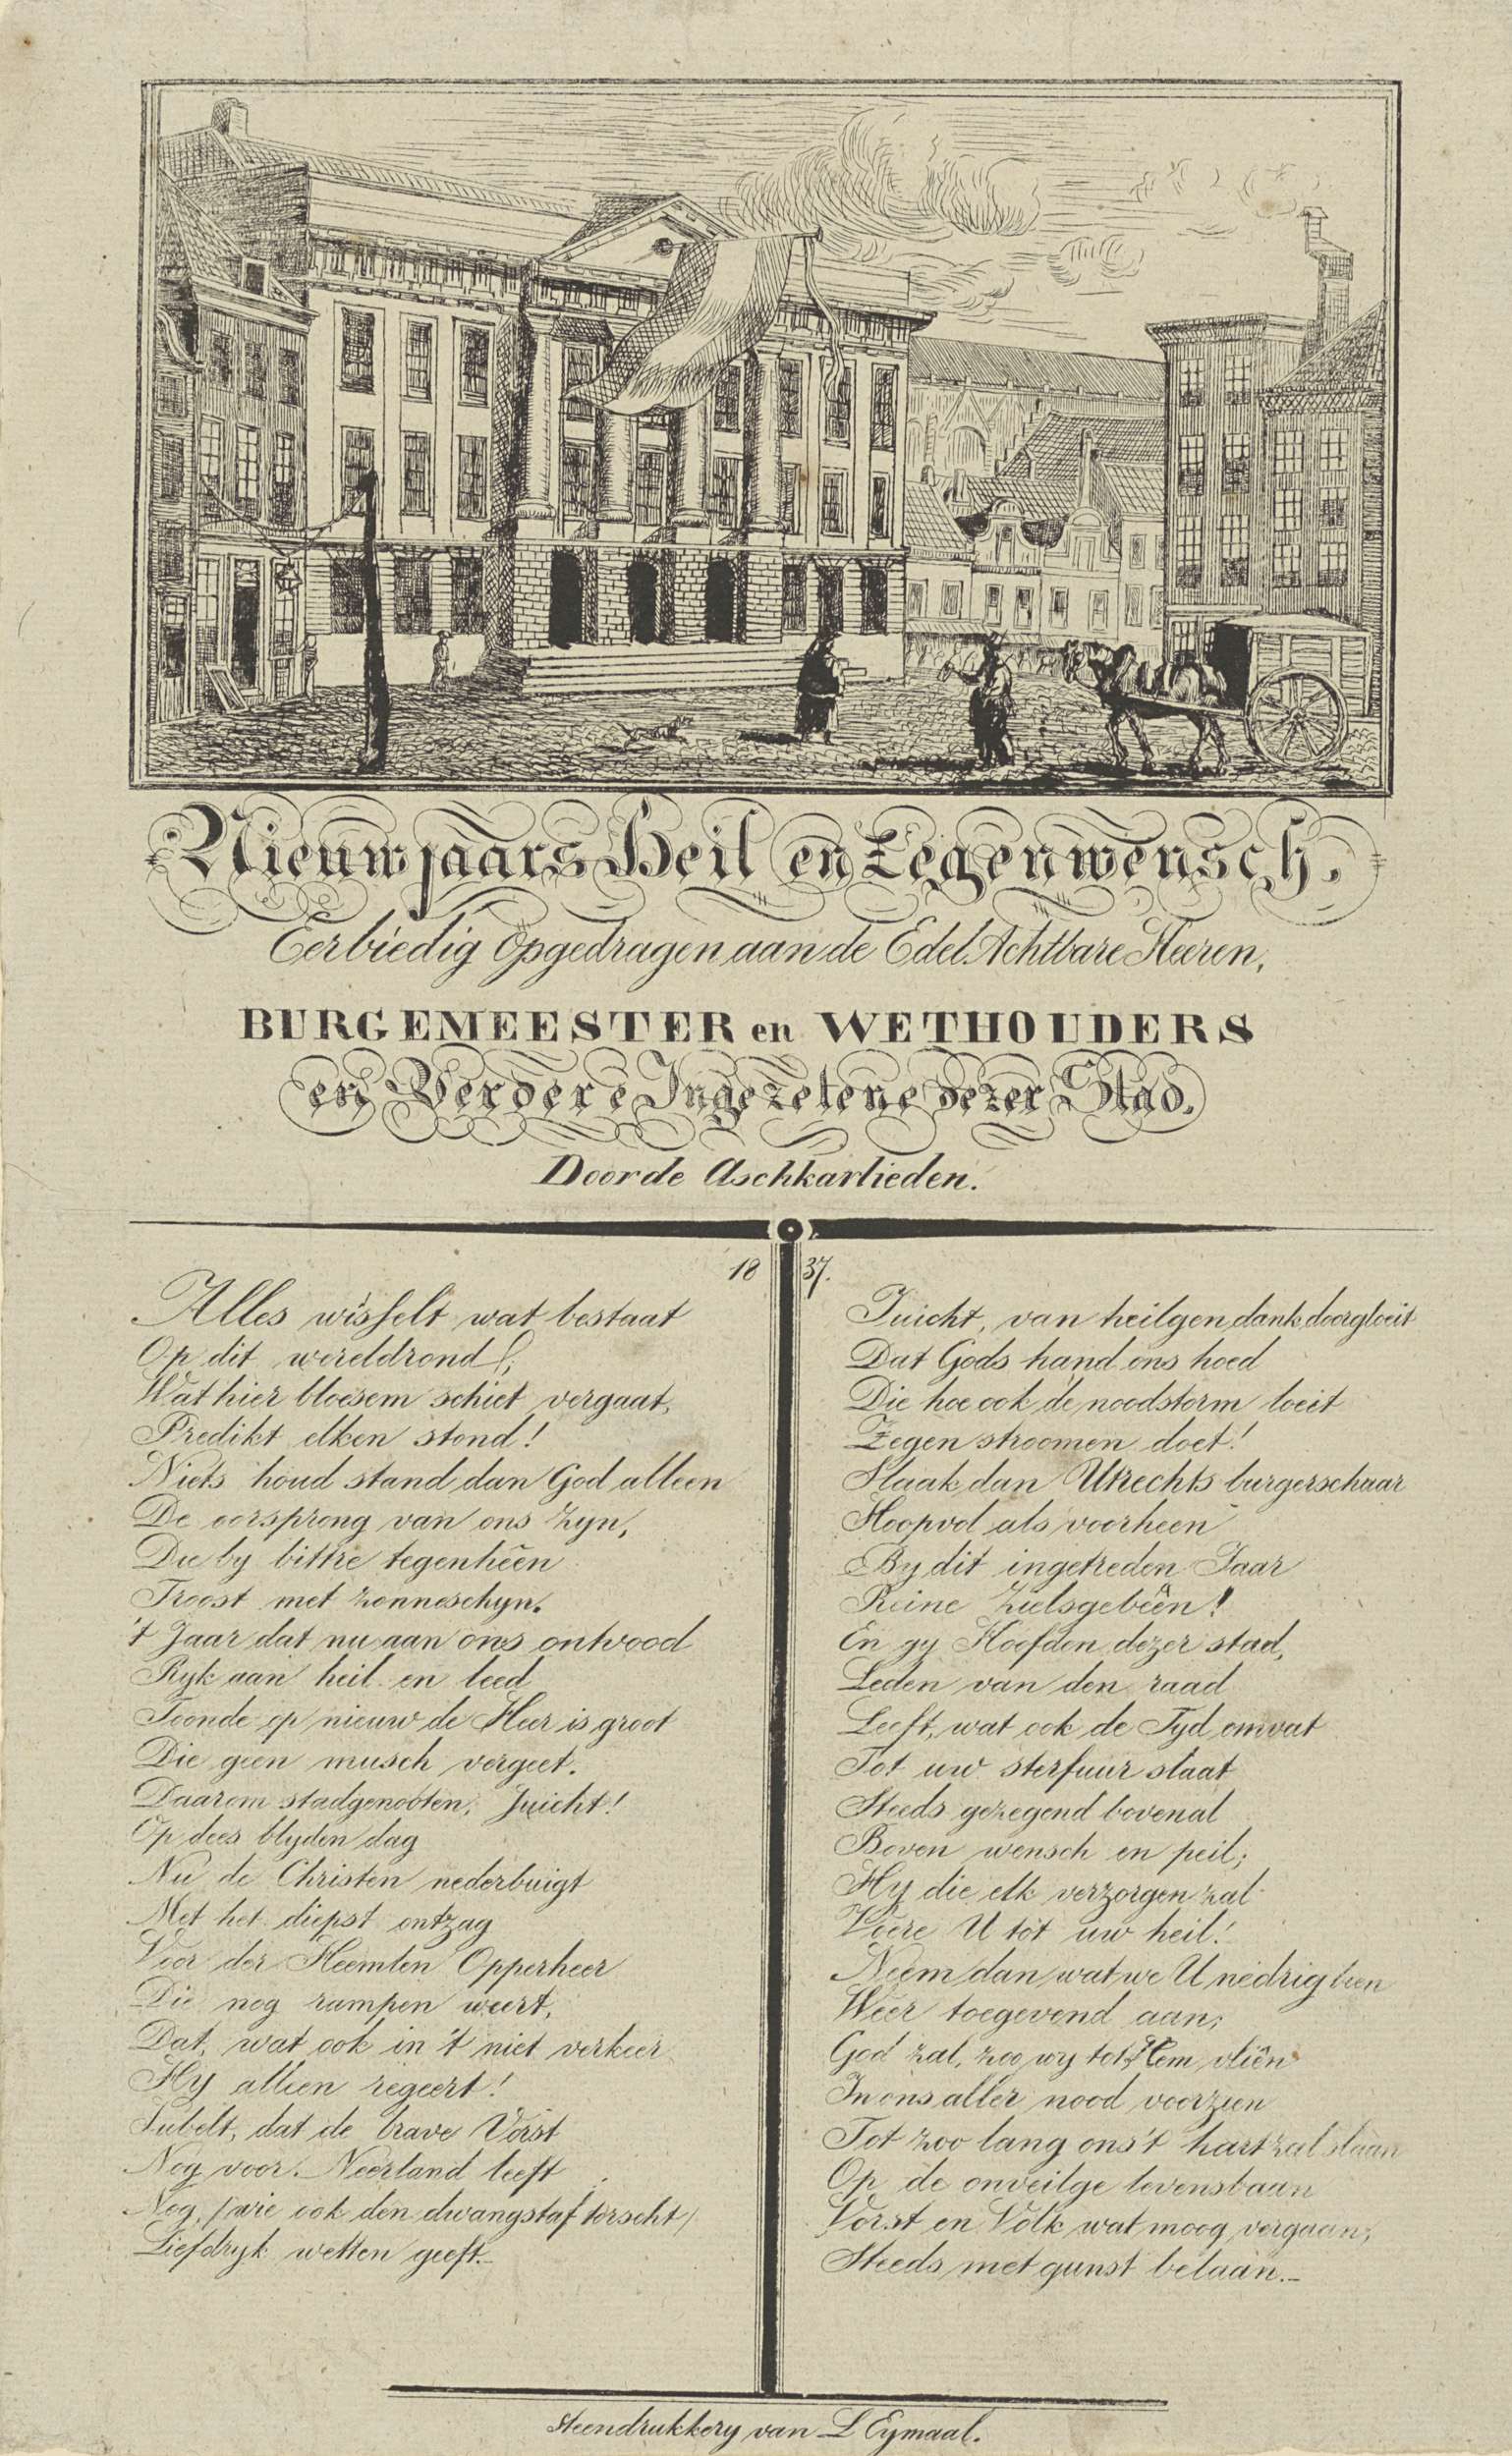 Nieuwjaars Heil en Zegenwensch.
Eerbiedig Opgedragen aan de Edel Achtbare Heeren,
BURGEMEESTER en WETHOUDERS
en Verdere Ingezetene dezer Stad.
Door de Aschkarlieden.
1837.
Alles wisselt wat bestaat
Op dit wereldrond
Wat hier bloesem schiet vergaat,
Predikt elken stond!
Niets houd stand dan God alleen
De oorsprong van ons zyn,
Die by bittre tegenhêen
Troost met zonneschyn.
't Jaar dat nu aan ons ontvood
Ryk aan heil en leed
Toonde op nieuw de Heer is groot
Die geen musch vergeet.
Daarom stadgenooten, Juicht!
Op dees blyden dag
Nu de Christen nederbuigt
Met het diepst ontzag
Voor der Heemlen Opperheer
Die nog rampen weert,
Dat, wat ook in 't niet verkeer
Hy alleen regeert!
Jubelt, dat de brave Vorst
Nog voor Neerland leeft
Nog, (wie ook den dwangstaf torscht)
Liefdryk wetten geeft._
Juicht, van heilgen dank doorgloeit
Dat Gods hand ons hoed
Die hoe ook de noodstorm loeit
Zegen stroomen doet!
Slaak dan Utrechts burgerschaar
Hoopvol als voorheen
By dit ingetreden Jaar
Reine Zielsgebêên!
En gy Hoofden dezer stad,
Leden van den raad
Leeft, wat ook de Tyd omvat
Tot uw sterfuur slaat
Steeds gezegend bovenal
Boven wensch en peil;
Hy die elk verzorgen zal
Voere U tot uw heil!
Neem dan wat we U nedrig bien
Weer toegevend aan;
God zal, zoo wy tot Hem vliên
In ons aller nood voorzien
Tot zoo lang ons 't hart zal slaan
Op de onveilge levensbaan
Vorst en Volk wat moog vergaan,
Steeds met gunst belaân._
Steendrukkery van L Eymaal.